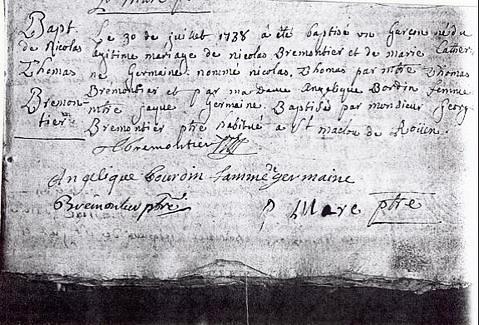 Bapt
de Nicolas
Thomas
Bremon-
tier
Le 30 de juillet 1738 a été baptisé un garçon né du
légitime mariage de nicolas Bremontier et de marie Cather
ne Germaine. nommé nicolas, Thomas par mtre Thomas
Bremontier et par ma dame Angelique Bordin femme
mtre jaque Germaine. Baptisé par monsieur Georg
Bremontier ptre habitué a St maclou de Roüen.
Bramontier
Angelique bourdin famme de germaine
Bremontier ptre
P Mare ptre